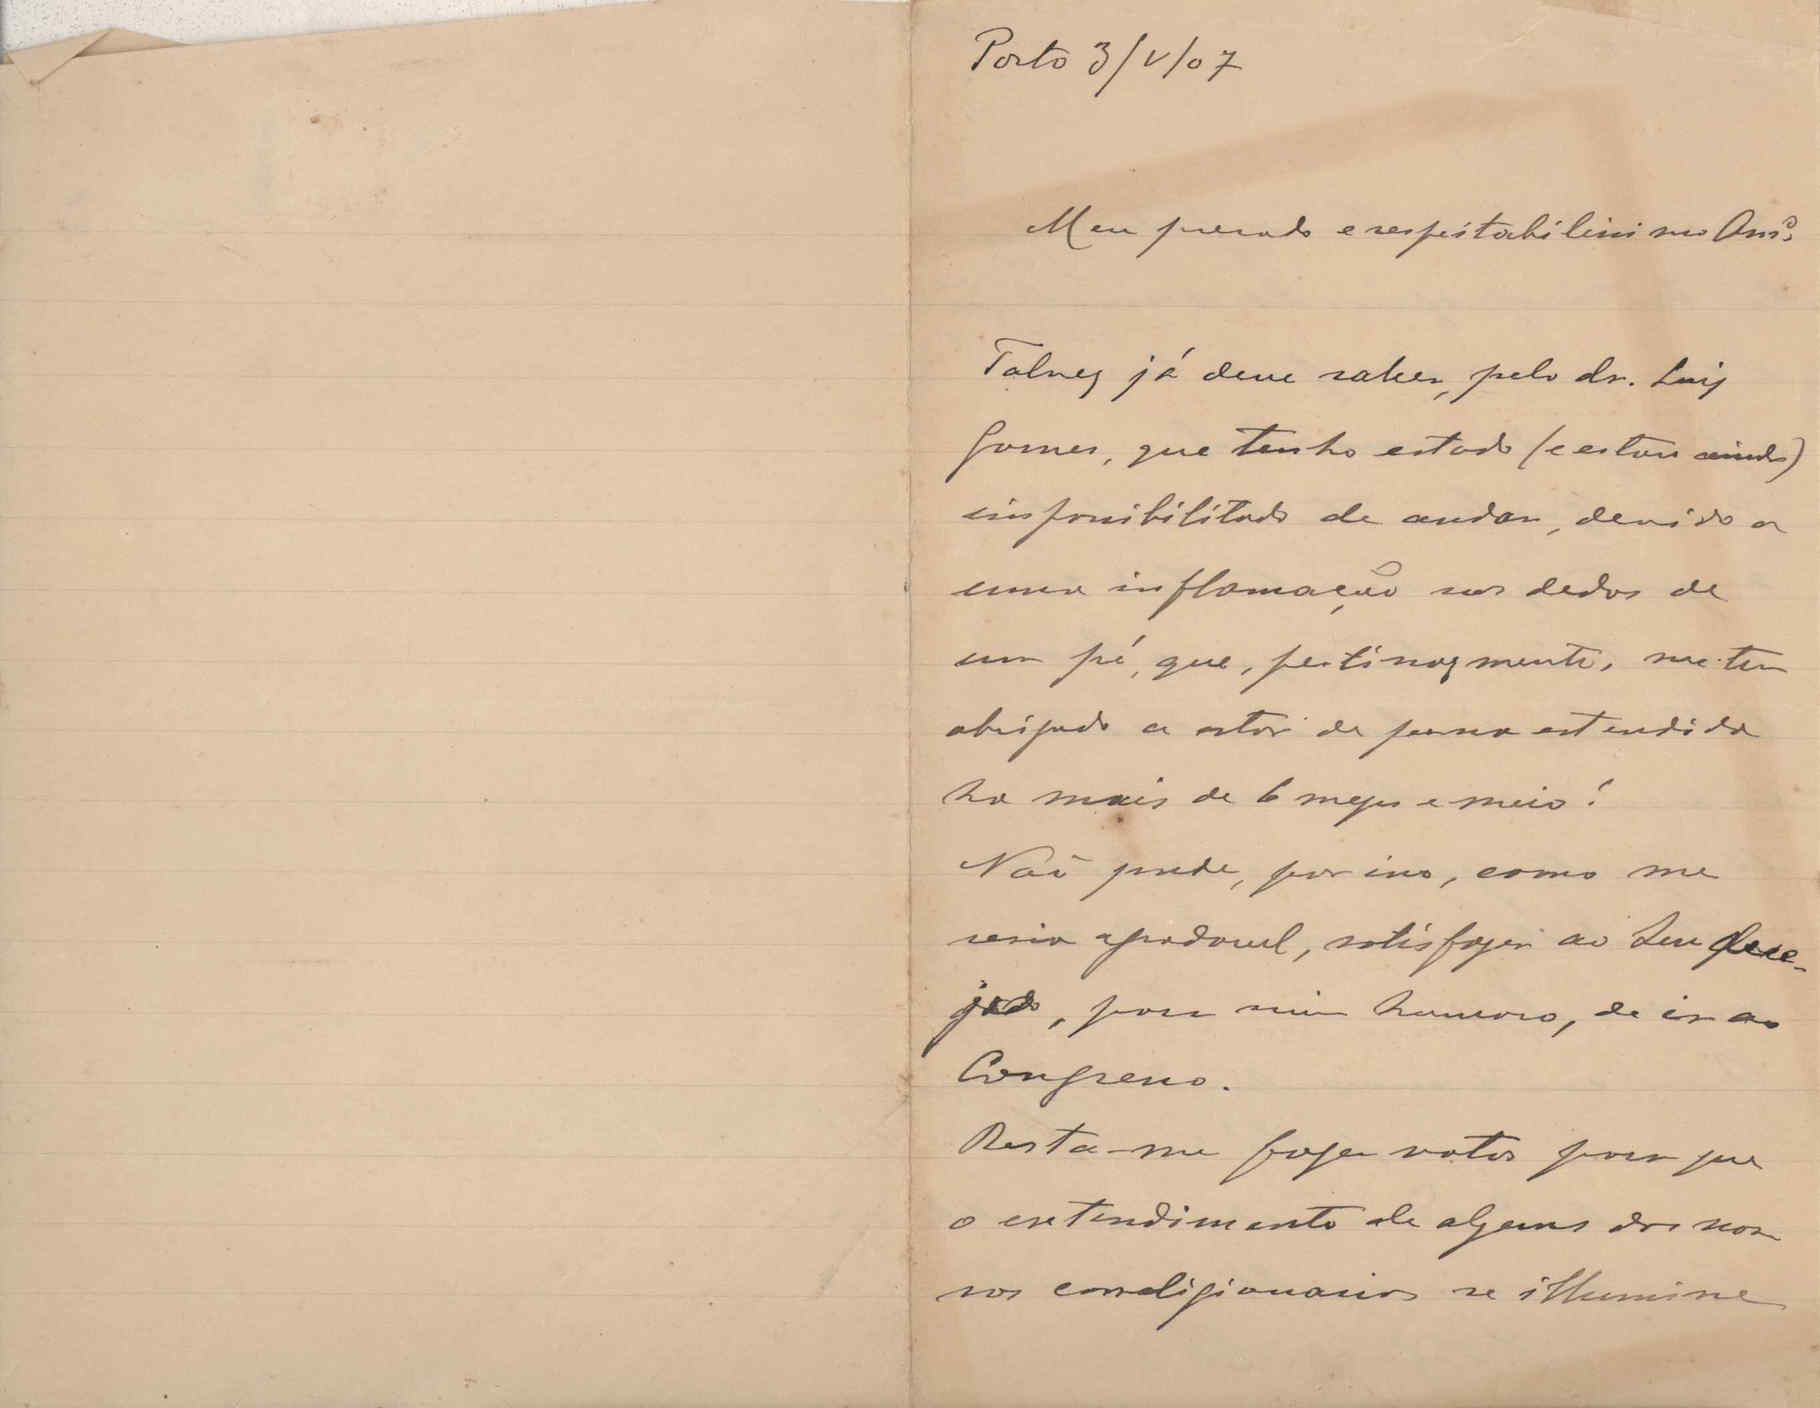 Porto 3/V/07
Meu presado e respeitabilissimo Am.º
Talvez já deve saber, pelo dr. Luiz
Gomes, que tenho estado (e estou ainda)
impossibilitado de andar, devido a
uma inflamação nos dedos de
um pé, que, pertinazmente, me tem
obrigado a estar de perna estendida
ha mais de 6 mezes e meio!
Não pude, por isso, como me
seria agradavel, satisfazer ao Seu dese-
jado, para mim honroso, de ir ao
Congresso.
Resta-me fazer votos para que
o entendimento de alguns dos nos-
sos correligionarios se illumine